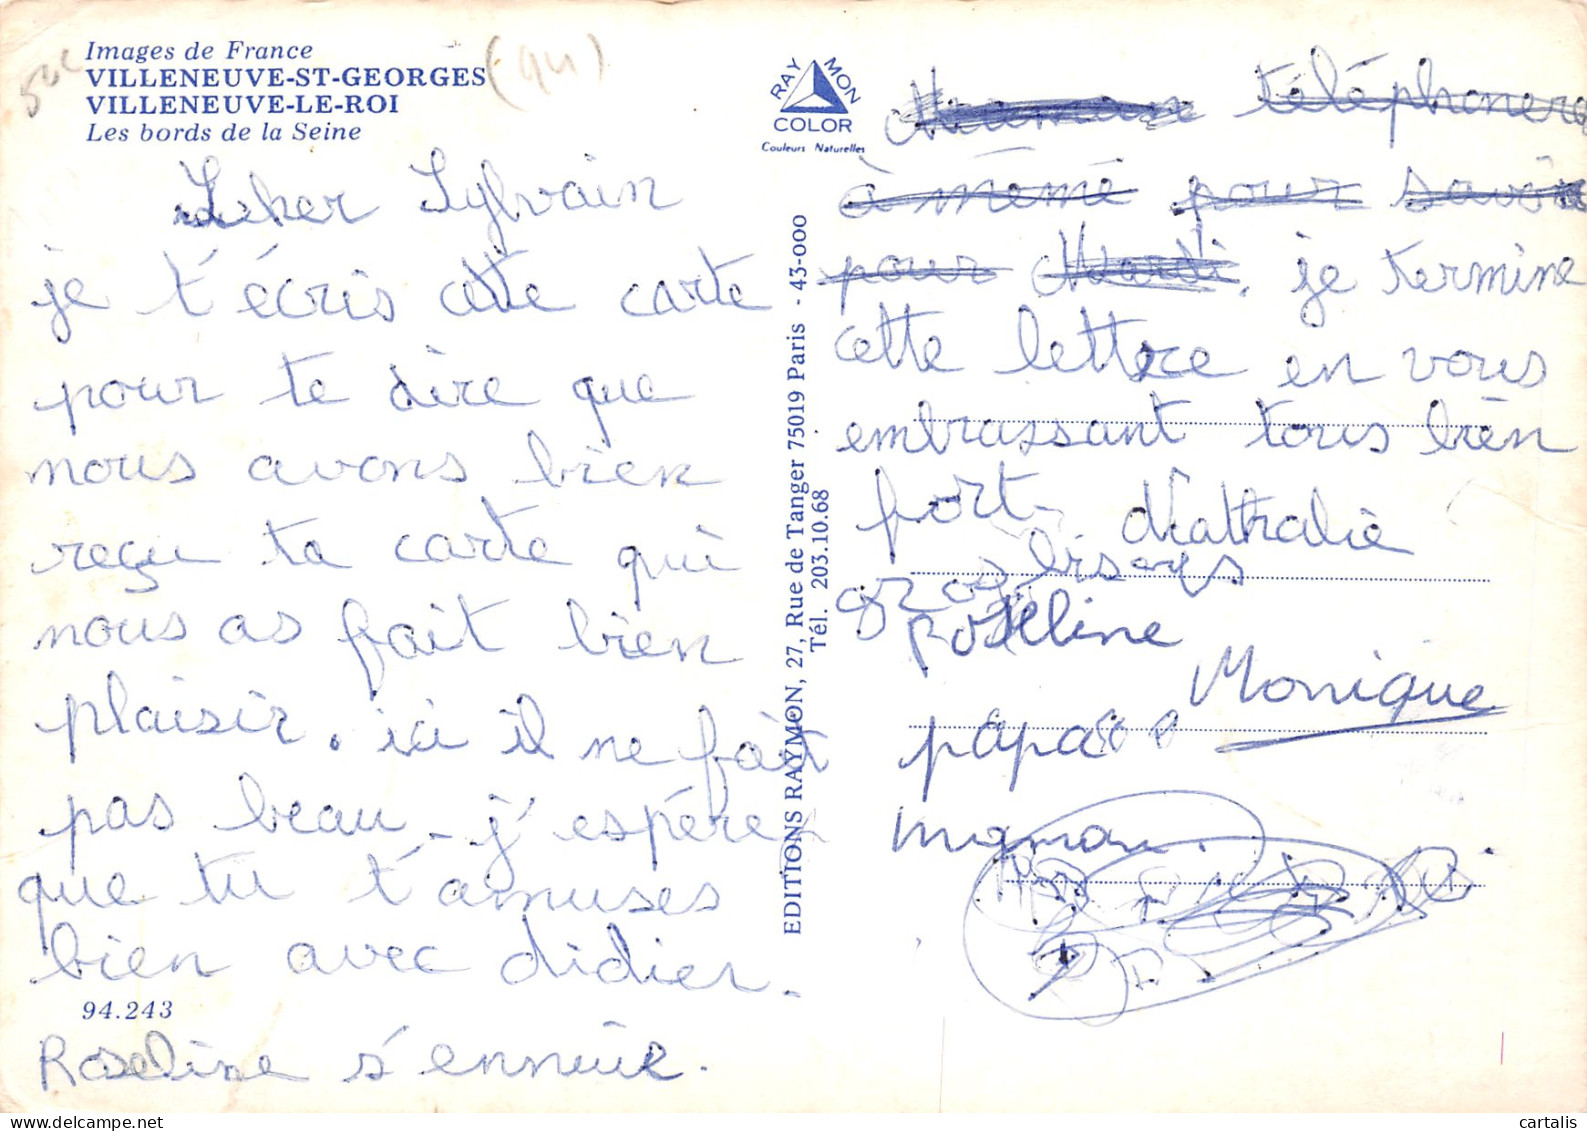 Images de France
VILLENEUVE-ST-GEORGES (94)
VILLENEUVE-LE-ROI
Les bords de la Seine
Cher Sylvain
je t'écris cette carte
pour te dire que
nous avons bien
reçu ta carte qui
nous as fait bien
plaisir. ici il ne fait
pas beau - j'espére
que tu t'amuses
bien avec didier.
94.243
Roseline s'ennuie.
RAYMON
COLOR
Couleurs Naturelles
EDITIONS RAYMON, 27, Rue de Tanger 75019 Paris - 43-000
Tél. 203.10.68
Maman téléphonera
à mémé pour savoir
pour Mardi. je termine
cette lettre en vous
embrassant tous bien
fort. Nathalie
gros bisous
Roseline
Monique
papa
maman.
cartalis